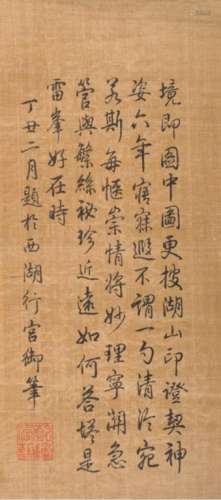 境即圖中圖更披湖山印證契神
姿六年寤寐遐不謂一勺清泠宛
若斯每愜崇情將妙理寧關急
管與繁絲秘珍近遠如何荅塔是
雷峯好在時
丁丑二月題於西湖行宮御筆